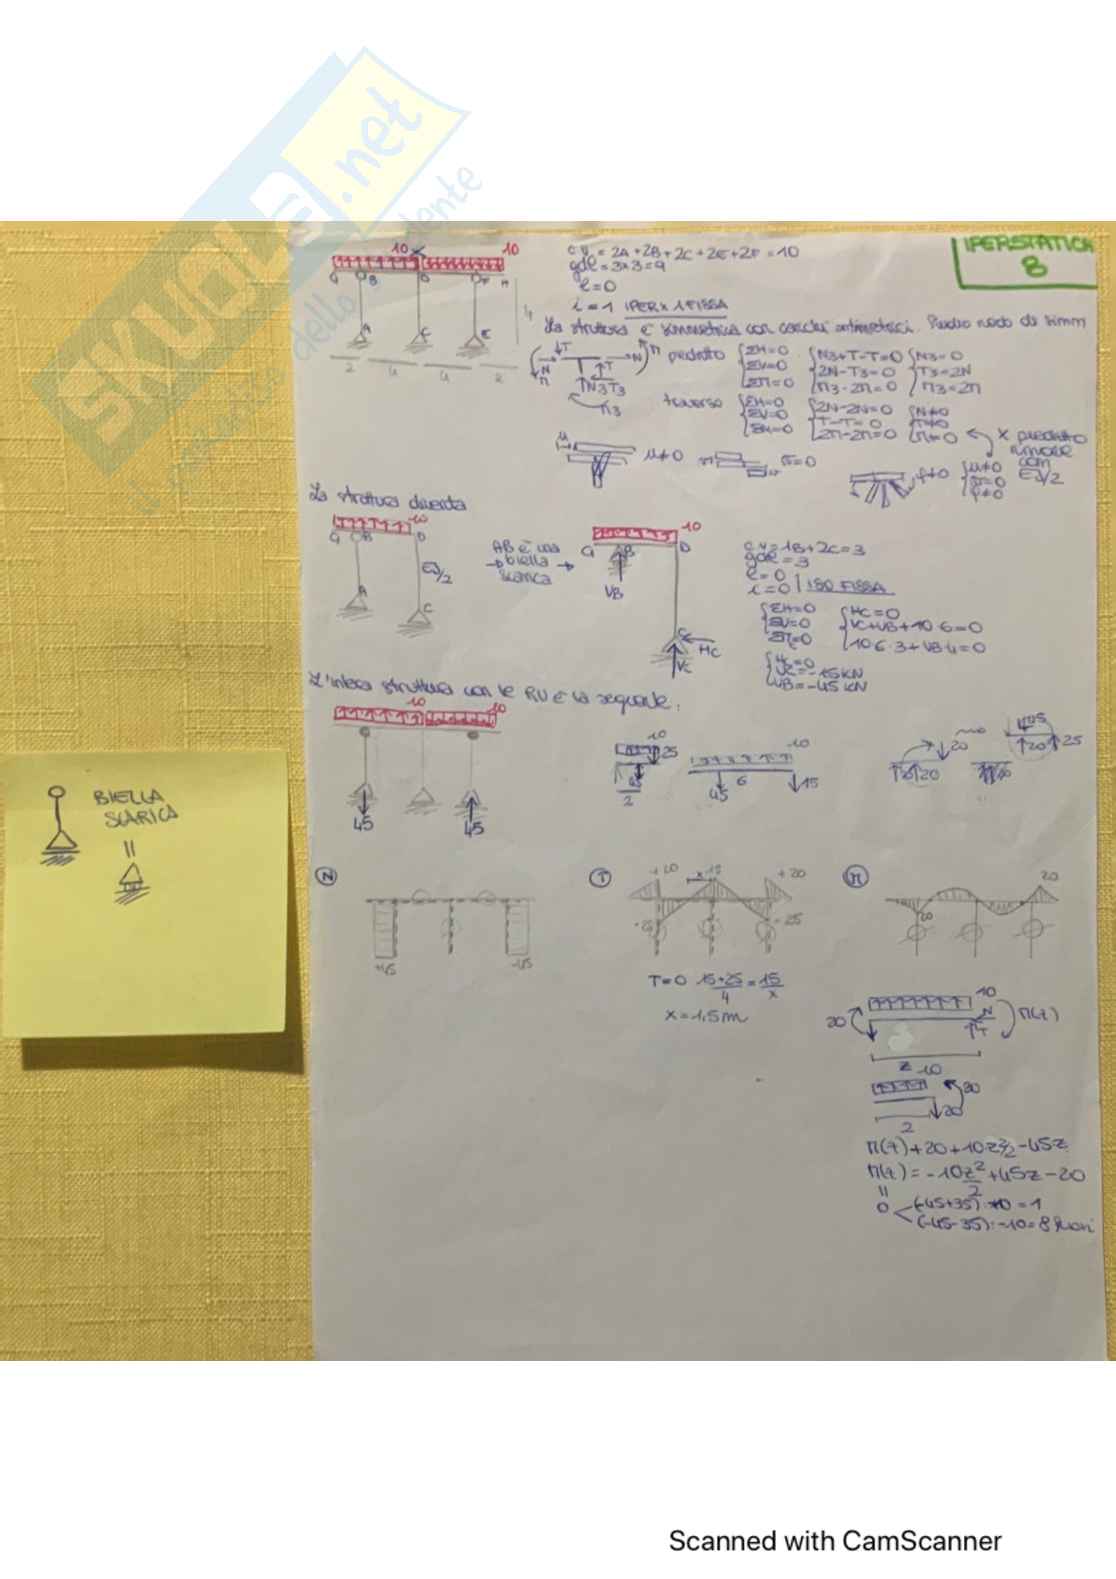 SKUOLA.net
il paradiso dello studente
IPERSTATICA
8
10 10
c.v. = 2A+2B+2C+2E+2F = 10
gdl = 3x3=9
l=0
i=1 IPER x 1 FISSA
G B D F H
A C E
2 4 4 2
4
La struttura è simmetrica con carichi antimetrici. Piedro nodo di simm
piedritto
ΣH=0
ΣV=0
ΣM=0
N3+T-T=0
2N-T3=0
M3-2M=0
N3=0
T3=2N
M3=2M
traverso
ΣH=0
ΣV=0
ΣM=0
2N-2N=0
T-T=0
2M-2M=0
N≠0
T≠0
M≠0
x piedritto
rimane
con
EJ/2
μ≠0
σ=0
φ≠0
μ≠0
σ=0
φ≠0
La struttura diventa
10
G B D
EJ/2
A C
AB è una
biella
scarica
10
G B D
VB
C
HC
VC
c.v=1B+2C=3
gdl=3
l=0
i=0 | ISO FISSA
ΣH=0
ΣV=0
ΣM=0
HC=0
VC+VB+10·6=0
10·6·3+VB·4=0
HC=0
VC=-15KN
VB=-45KN
L'intera struttura con le RV è la seguente:
10 10
45 45
10
25
45
2
10
6
45 15
20
20
25
20 25
BIELLA
SCARICA
=
N
+45 -45
T
+20 x 15 +20
-25 -25
T=0 15+25/4=15/x
x=1,5m
M
20
20
10
20 N M(z)
T
z
10
20
20
2
M(z)+20+10z²/2-45z
M(z)=-10z²/2+45z-20
=
0 (-45+35):-10=1
(-45-35):-10=8 fuori
Scanned with CamScanner